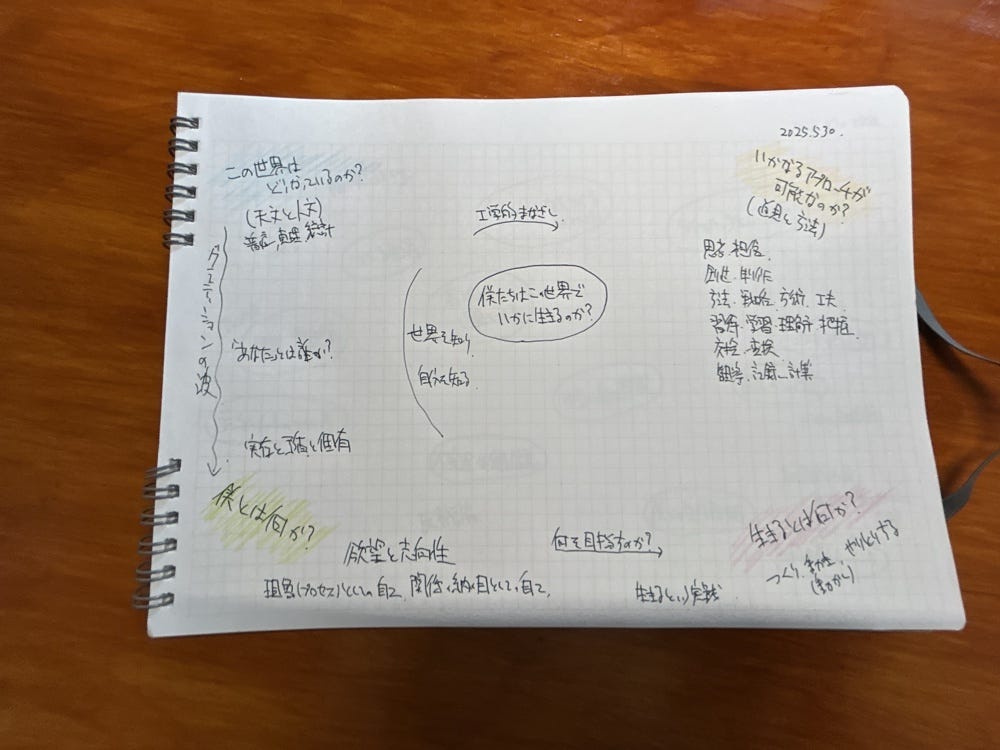 2025.5.30.
この世界は
どうなっているのか?
(天文と人文)
普遍、真理、統計
クエスチョンの波
「あなた」とは誰か?
実存と予直と個有
僕とは何か?
工学的まなざし
僕たちはこの世界で
いかに生きるのか?
世界を知り
自分を知る
いかなるアプローチが
可能なのか?
(道具と方法)
思考、想像
創造、制作
方法、戦略、方術、工夫
習得、学習、理解、把握
変換
観察、記録、計算
欲望と志向性
現象(プロセス)としての自己、関係の網の目としての自己
何を目指すのか?
生きるという実践
生きるとは何か?
つくり、
やりとりする